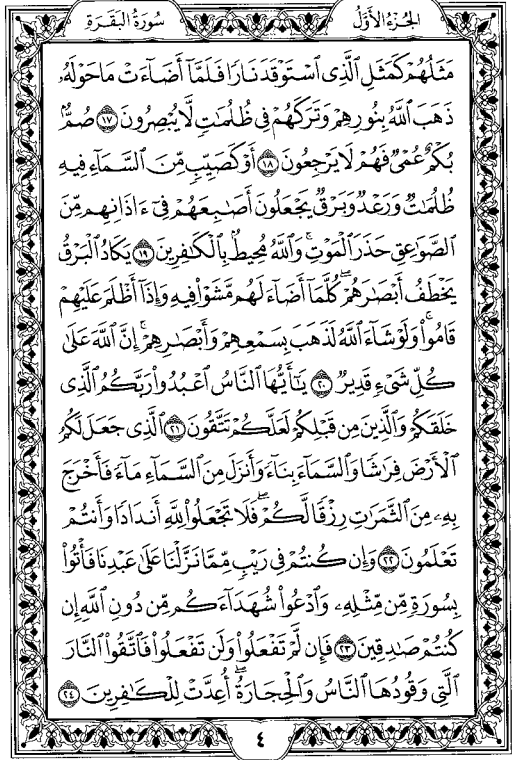 سُورَةُ الْبَقَرَةِ الجُزْءُ الأَوَّلُ
مَثَلُهُمْ كَمَثَلِ ٱلَّذِى ٱسْتَوْقَدَ نَارًا فَلَمَّآ أَضَآءَتْ مَا حَوْلَهُۥ
ذَهَبَ ٱللَّهُ بِنُورِهِمْ وَتَرَكَهُمْ فِى ظُلُمَٰتٍ لَّا يُبْصِرُونَ ١٧ صُمٌّۢ
بُكْمٌ عُمْىٌ فَهُمْ لَا يَرْجِعُونَ ١٨ أَوْ كَصَيِّبٍ مِّنَ ٱلسَّمَآءِ فِيهِ
ظُلُمَٰتٌ وَرَعْدٌ وَبَرْقٌ يَجْعَلُونَ أَصَٰبِعَهُمْ فِىٓ ءَاذَانِهِم مِّنَ
ٱلصَّوَٰعِقِ حَذَرَ ٱلْمَوْتِ ۚ وَٱللَّهُ مُحِيطٌۢ بِٱلْكَٰفِرِينَ ١٩ يَكَادُ ٱلْبَرْقُ
يَخْطَفُ أَبْصَٰرَهُمْ ۖ كُلَّمَآ أَضَآءَ لَهُم مَّشَوْا۟ فِيهِ وَإِذَآ أَظْلَمَ عَلَيْهِمْ
قَامُوا۟ ۚ وَلَوْ شَآءَ ٱللَّهُ لَذَهَبَ بِسَمْعِهِمْ وَأَبْصَٰرِهِمْ ۚ إِنَّ ٱللَّهَ عَلَىٰ
كُلِّ شَىْءٍ قَدِيرٌ ٢٠ يَٰٓأَيُّهَا ٱلنَّاسُ ٱعْبُدُوا۟ رَبَّكُمُ ٱلَّذِى
خَلَقَكُمْ وَٱلَّذِينَ مِن قَبْلِكُمْ لَعَلَّكُمْ تَتَّقُونَ ٢١ ٱلَّذِى جَعَلَ لَكُمُ
ٱلْأَرْضَ فِرَٰشًا وَٱلسَّمَآءَ بِنَآءً وَأَنزَلَ مِنَ ٱلسَّمَآءِ مَآءً فَأَخْرَجَ
بِهِۦ مِنَ ٱلثَّمَرَٰتِ رِزْقًا لَّكُمْ ۖ فَلَا تَجْعَلُوا۟ لِلَّهِ أَندَادًا وَأَنتُمْ
تَعْلَمُونَ ٢٢ وَإِن كُنتُمْ فِى رَيْبٍ مِّمَّا نَزَّلْنَا عَلَىٰ عَبْدِنَا فَأْتُوا۟
بِسُورَةٍ مِّن مِّثْلِهِۦ وَٱدْعُوا۟ شُهَدَآءَكُم مِّن دُونِ ٱللَّهِ إِن
كُنتُمْ صَٰدِقِينَ ٢٣ فَإِن لَّمْ تَفْعَلُوا۟ وَلَن تَفْعَلُوا۟ فَٱتَّقُوا۟ ٱلنَّارَ
ٱلَّتِى وَقُودُهَا ٱلنَّاسُ وَٱلْحِجَارَةُ ۖ أُعِدَّتْ لِلْكَٰفِرِينَ ٢٤
٤